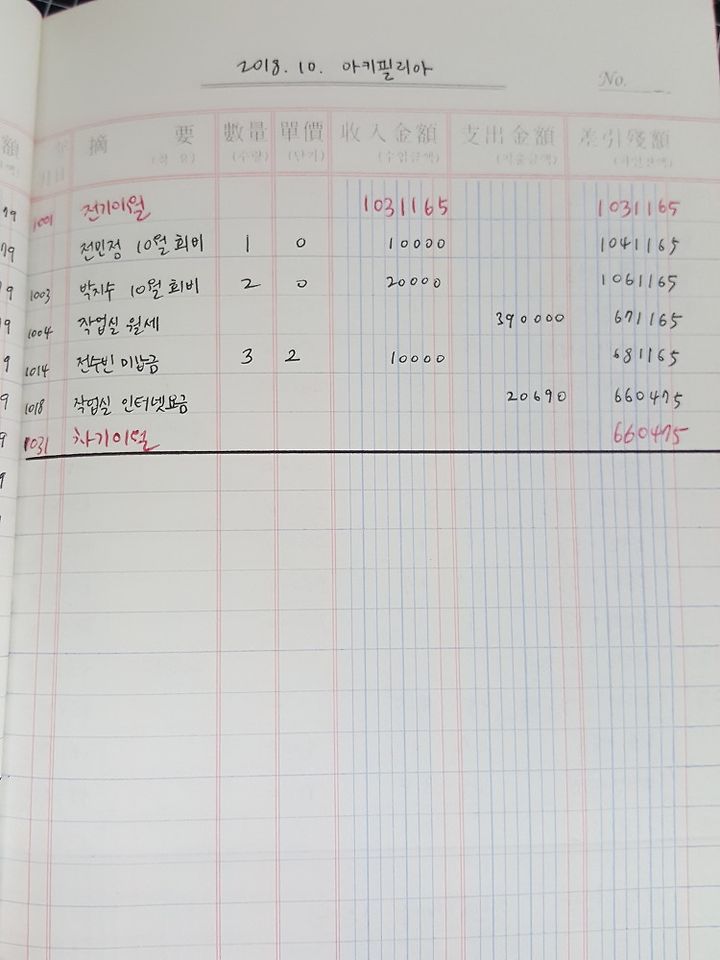 2018. 10. 아키필리아
No.
摘 要 數量 單價 收入金額 支出金額 差引殘額
(적 요) (수량) (단가) (수입금액) (지출금액) (차인잔액)
1001 전기이월 1031165 1031165
전민정 10월 회비 1 0 10000 1041165
1003 박지수 10월 회비 2 0 20000 1061165
1004 작업실 월세 390000 671165
1014 전수빈 미납금 3 2 10000 681165
1018 작업실 인터넷요금 20690 660475
1031 차기이월 660475